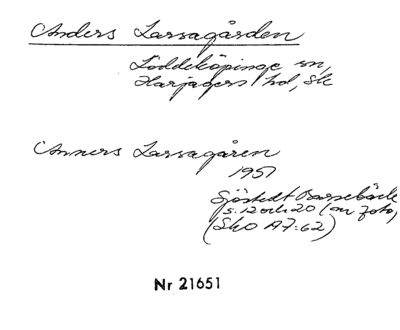 Anders Larsagården
Löddeköpinge sn,
Harjagers hd, Sk
Anners Larsagåren
1957
Sjöstedt Barsebäck
s. 12 och 20 (av foto)
(SkO A7:62)
Nr 21651